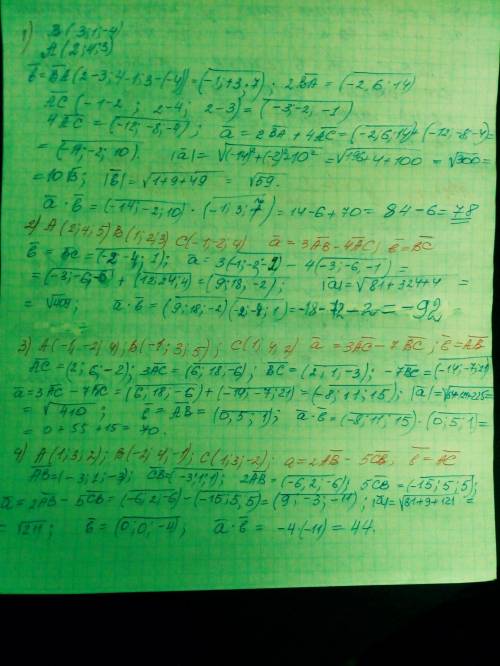 1) B(-3;1;-4)
A(2;4;3)
b̅=B̅A̅(2-3;4-1;3-(-4))=(-1;+3;7); 2B̅A̅=(-2;6;14)
A̅C̅(-1-2; 2-4; 2-3)=(-3;-2;-1)
4A̅C̅=(-12;-8;-4); a̅=2B̅A̅+4A̅C̅=(-2;6;14)+(-12;-8;-4)=
=(-14;-2;10). |a̅|=√(-14)²+(-2)²+10²=√196+4+100=√300=
=10√3. |b̅|=√1+9+49=√59.
a̅·b̅=(-14;-2;10)·(-1;3;7)=14-6+70=84-6=78
2) A(2;4;5) B(1;2;3) C(-1;-2;4) a̅=3A̅B̅-4A̅C̅; b̅=B̅C̅
b̅=B̅C̅=(-2;-4;1); a̅=3(-1;-2;-2)-4(-3;-6;-1)=
=(-3;-6;-6)+(12;24;4)=(9;18;-2); |a̅|=√81+324+4=
=√409; a̅·b̅=(9;18;-2)(-2;-4;1)=-18-72-2=-92
3) A(-1;-2;4); B(-1;3;5); C(1;4;2) a̅=3A̅C̅-7B̅C̅; b̅=A̅B̅
A̅C̅=(2;6;-2); 3A̅C̅=(6;18;-6); B̅C̅=(2;1;-3); -7B̅C̅=(-14;-7;21)
a̅=3A̅C̅-7B̅C̅=(6;18;-6)+(-14;-7;21)=(-8;11;15); |a̅|=√64+121+225=
=√410; b̅=A̅B̅=(0;5;1); a̅·b̅=(-8;11;15)·(0;5;1)=
=0+55+15=70.
4) A(1;3;2); B(-2;4;-1); C(1;3;-2); a̅=2A̅B̅-5C̅B̅, b̅=A̅C̅
A̅B̅=(-3;1;-3); C̅B̅=(-3;1;1); 2A̅B̅=(-6;2;-6); 5C̅B̅=(-15;5;5);
a̅=2A̅B̅-5C̅B̅=(-6;2;-6)-(-15;5;5)=(9;-3;-11); |a̅|=√81+9+121=
=√211; b̅=(0;0;-4); a̅·b̅=-4·(-11)=44.